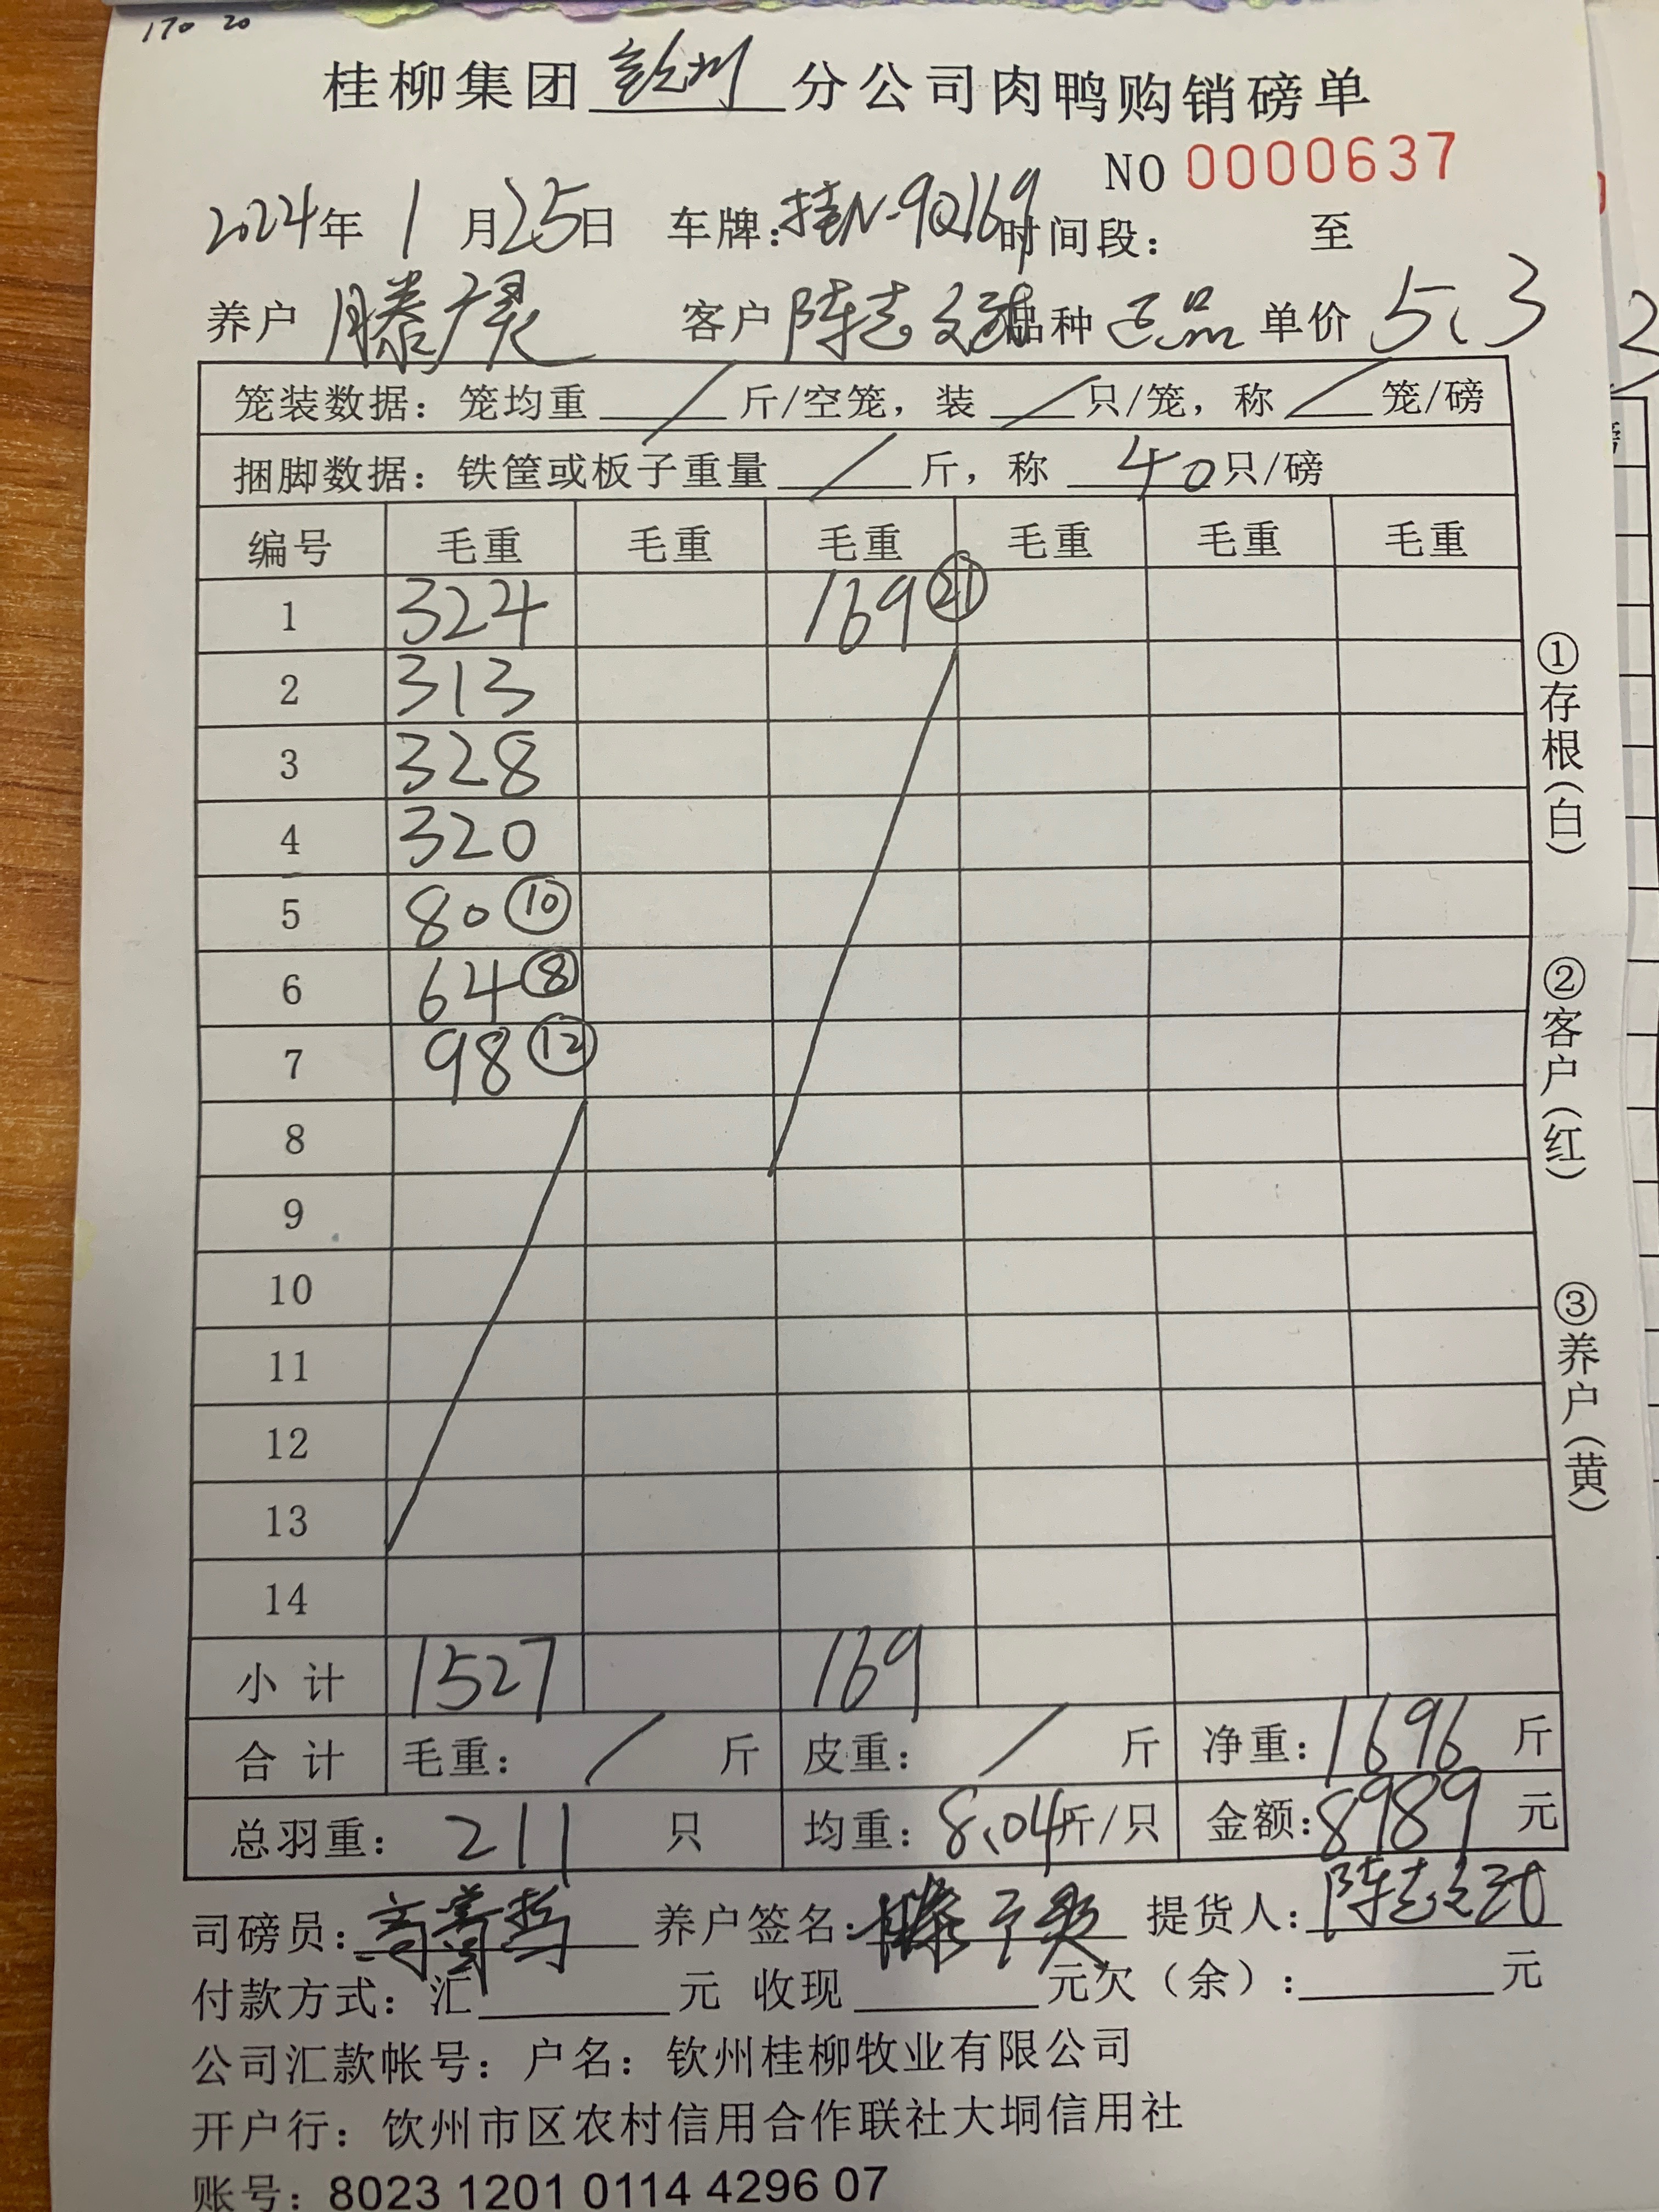 170 20
桂柳集团钦州分公司肉鸭购销磅单
NO 0000637
2024年 1月25日 车牌:桂N-9Q169时间段: 至
养户 滕 客户 陈志 品种 正品 单价 5.3
笼装数据: 笼均重 / 斤/空笼, 装 / 只/笼, 称 / 笼/磅
捆脚数据: 铁筐或板子重量 / 斤, 称 40只/磅
编号 毛重 毛重 毛重 毛重 毛重 毛重
1 324 169 ㉑
2 313
3 328
4 320
5 80 ⑩
6 64 ⑧
7 98 ⑫
8
9
10
11
12
13
14
小 计 1527 169
合 计 毛重: / 斤 皮重: / 斤 净重: 1696 斤
总羽重: 211 只 均重: 8.04斤/只 金额: 8989 元
司磅员: 养户签名: 滕 提货人: 陈志
付款方式: 汇 元 收现 元欠(余): 元
公司汇款帐号: 户名: 钦州桂柳牧业有限公司
开户行: 钦州市区农村信用合作联社大垌信用社
账号: 8023 1201 0114 4296 07
①存根(白)
②客户(红)
③养户(黄)